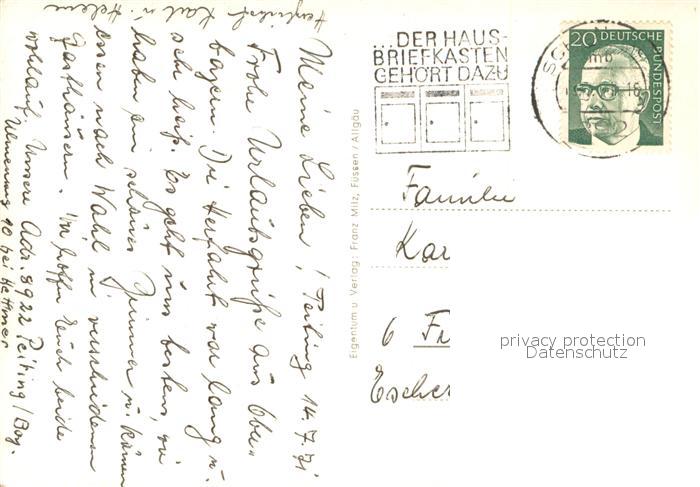 Meine Lieben! Peiting 14.7.71
Frohe Urlaubsgrüße aus Ober=
bayern. Die Herfahrt war lang u.
sehr heiß. Es geht uns bestens, wir
haben ein schönes Zimmer u. können
essen nach Wahl in verschiedenen
Gasthäusern. Wir hoffen Euch beide
wohlauf. Unsere Adr. 8922 Peiting/Bay.
Ulmenweg 10 bei Hettmer
Herzlichst Karl u. Helene
Eigentum u Verlag: Franz Milz, Füssen/Allgäu
...DER HAUS-
BRIEFKASTEN
GEHÖRT DAZU
20 DEUTSCHE
BUNDESPOST
SCH
Familie
Kar
6 Fr
Escher
privacy protection
Datenschutz